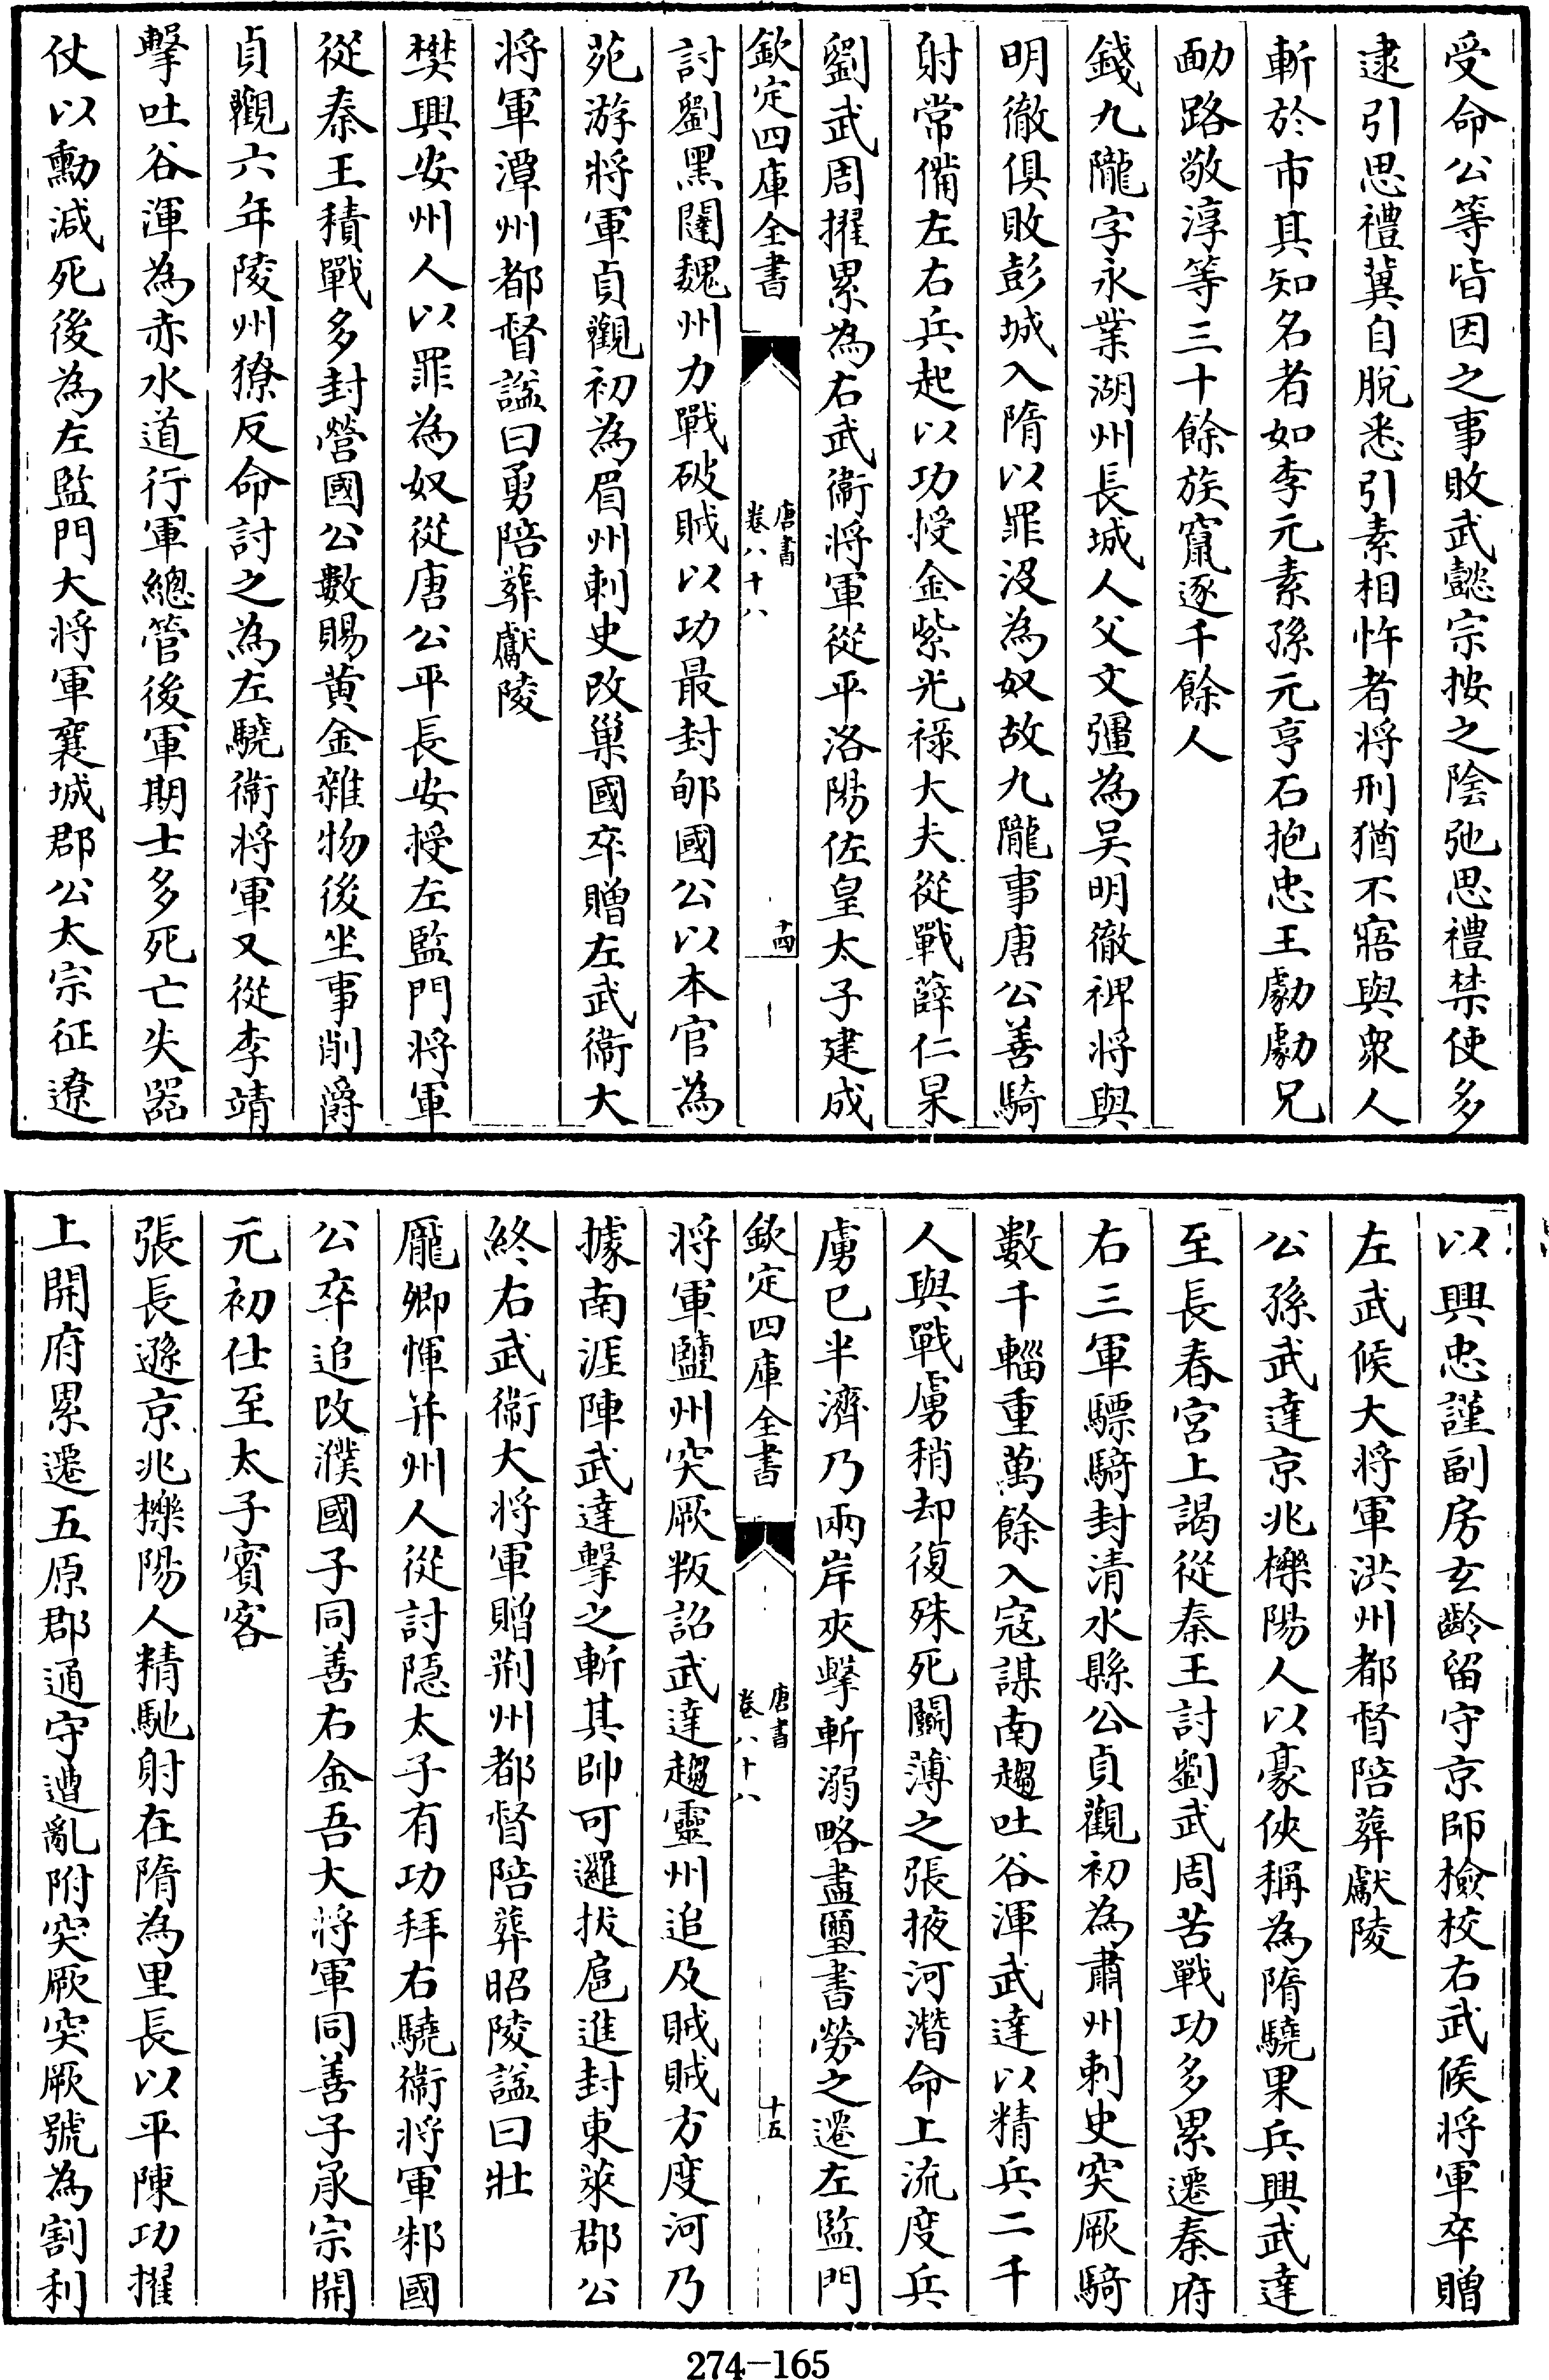 受命公等皆因之事敗武懿宗按之陰弛思禮禁使多
逮引思禮冀自脫悉引素相忤者將刑猶不寤與衆人
斬於市其知名者如李元素孫元亨石抱忠王勮勮兄
勔路敬淳等三十餘族竄逐千餘人
錢九隴字永業湖州長城人父文彊為吳明徹裨將與
明徹俱敗彭城入隋以罪没為奴故九隴事唐公善騎
射常備左右兵起以功授金紫光祿大夫從戰薛仁杲
劉武周擢累為右武衞將軍從平洛陽佐皇太子建成
欽定四庫全書
唐書
卷八十八
十四
討劉黑闥魏州力戰破賊以功最封郇國公以本官為
苑游將軍貞觀初為眉州刺史改巢國卒贈左武衞大
將軍潭州都督諡曰勇陪葬獻陵
樊興安州人以罪為奴從唐公平長安授左監門將軍
從秦王積戰多封營國公數賜黄金雜物後坐事削爵
貞觀六年陵州獠反命討之為左驍衞將軍又從李靖
擊吐谷渾為赤水道行軍總管後軍期士多死亡失器
仗以勳減死後為左監門大將軍襄城郡公太宗征遼
以興忠謹副房玄齡留守京師檢校右武候將軍卒贈
左武候大將軍洪州都督陪葬獻陵
公孫武達京兆櫟陽人以豪俠稱為隋驍果兵興武達
至長春宮上謁從秦王討劉武周苦戰功多累遷秦府
右三軍驃騎封清水縣公貞觀初為肅州刺史突厥騎
數千輜重萬餘入寇謀南趨吐谷渾武達以精兵二千
人與戰虜稍却復殊死鬭薄之張掖河潛命上流度兵
虜已半濟乃兩岸夾擊斬溺略盡璽書勞之遷左監門
欽定四庫全書
唐書
卷八十八
十五
將軍鹽州突厥叛詔武達趨靈州追及賊賊方度河乃
據南涯陣武達擊之斬其帥可邏拔扈進封東萊郡公
終右武衞大將軍贈荆州都督陪葬昭陵諡曰壯
龐卿惲并州人從討隱太子有功拜右驍衞將軍邾國
公卒追改濮國子同善右金吾大將軍同善子承宗開
元初仕至太子賓客
張長遜京兆櫟陽人精馳射在隋為里長以平陳功擢
上開府累遷五原郡通守遭亂附突厥突厥號為割利
274-165